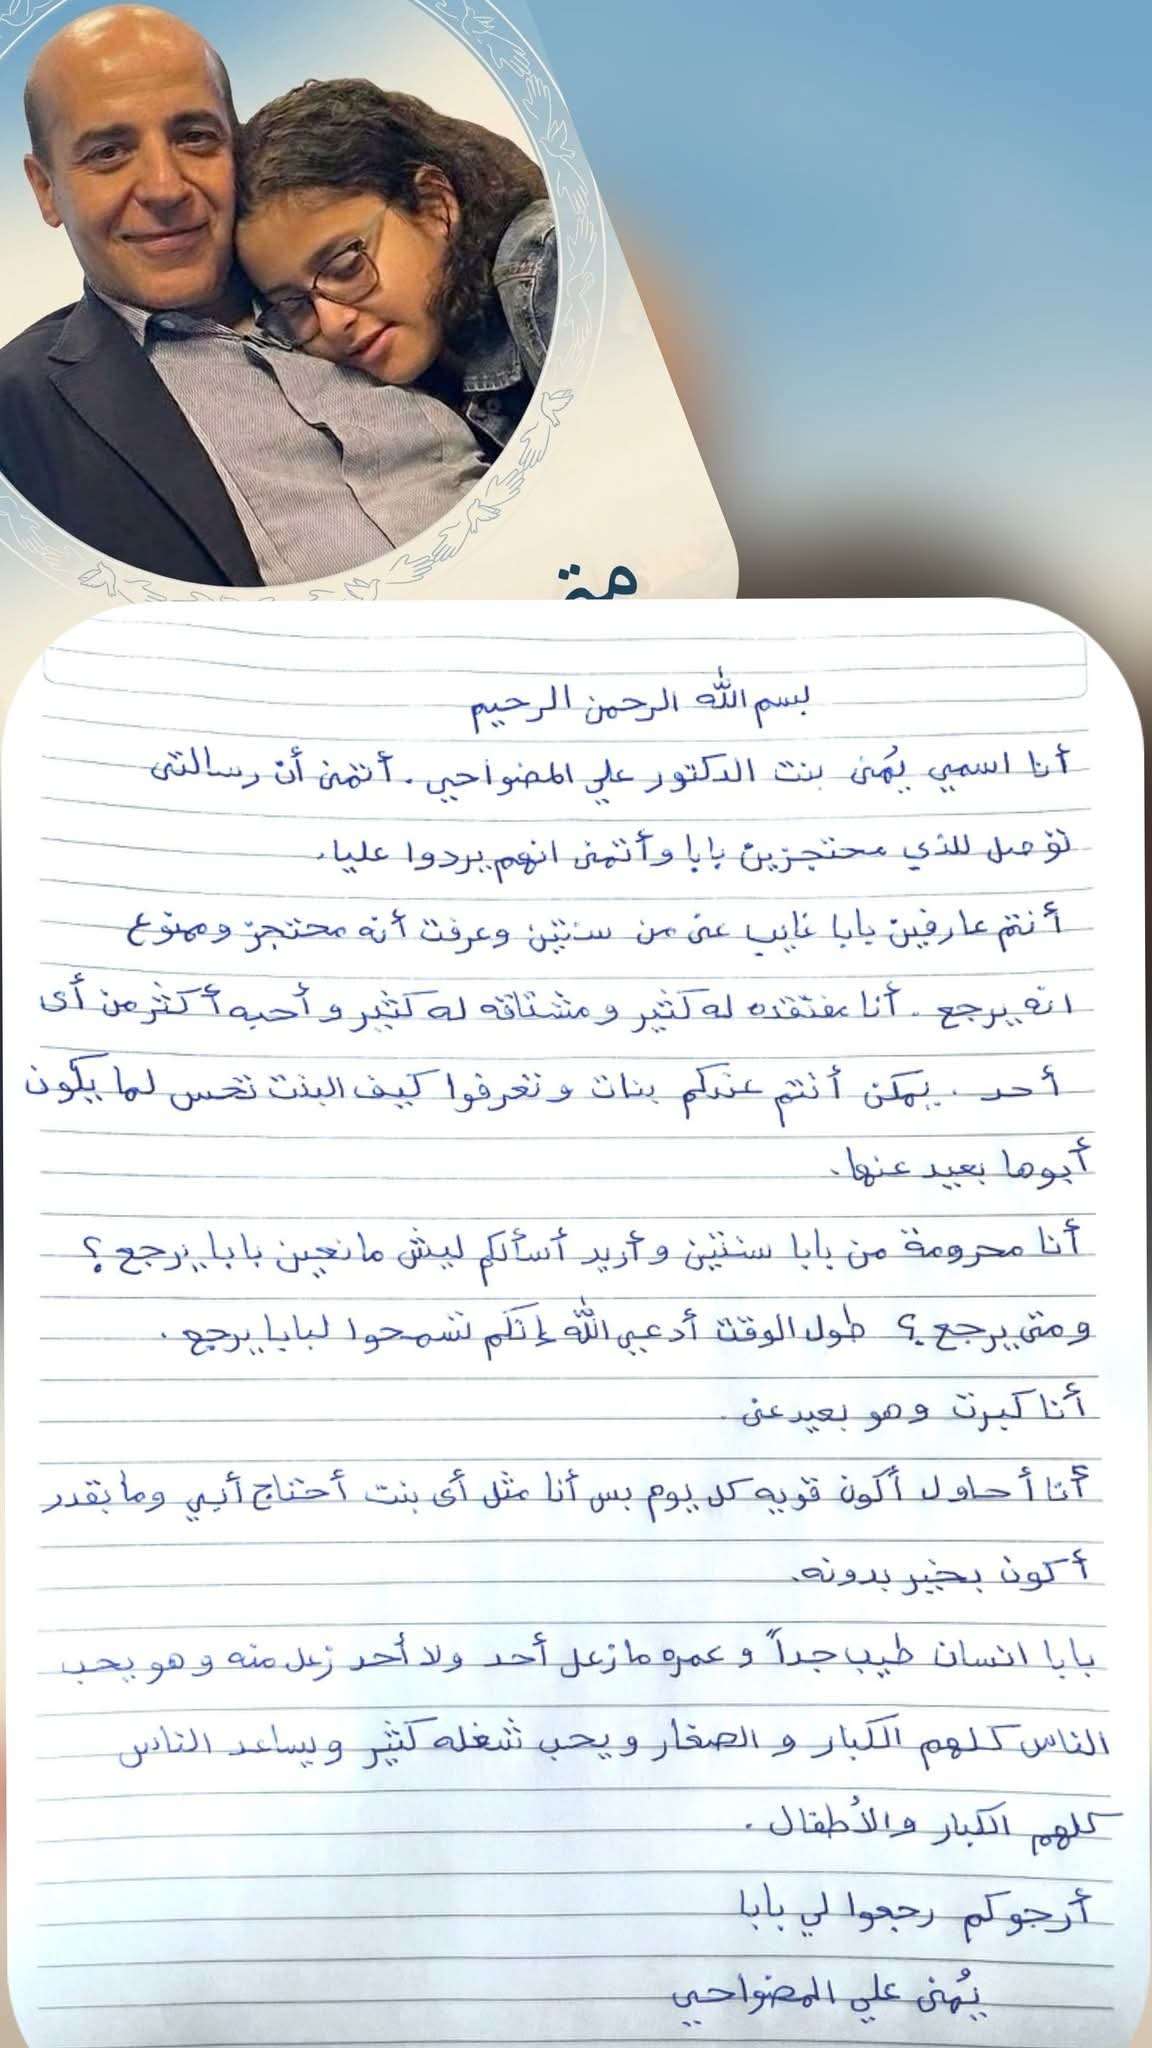 متى
بسم الله الرحمن الرحيم
أنا اسمي يُمنى بنت الدكتور علي المضواحي. أتمنى أن رسالتي
توصل للذي محتجزين بابا وأتمنى انهم يردوا عليا.
أنتم عارفين بابا غايب عني من سنتين وعرفت أنه محتجز وممنوع
انه يرجع. أنا مفتقده له كثير ومشتاقه له كثير وأحبه أكثر من أي
أحد. يمكن أنتم عندكم بنات وتعرفوا كيف البنت تحس لما يكون
أبوها بعيد عنها.
أنا محرومة من بابا سنتين وأريد أسألكم ليش مانعين بابا يرجع؟
ومتى يرجع؟ طول الوقت أدعي الله إنكم تسمحوا لبابا يرجع.
أنا كبرت وهو بعيد عني.
أنا أحاول أكون قويه كل يوم بس أنا مثل أي بنت أحتاج أبي وما بقدر
أكون بخير بدونه.
بابا انسان طيب جداً وعمره ما زعل أحد ولا أحد زعل منه وهو يحب
الناس كلهم الكبار والصغار ويحب شغله كثير ويساعد الناس
كلهم الكبار والأطفال.
أرجوكم رجعوا لي بابا
يُمنى علي المضواحي